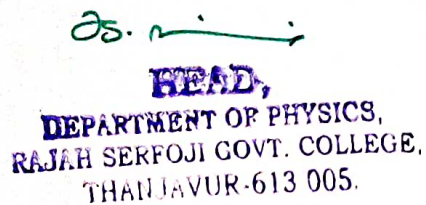 HEAD,
DEPARTMENT OF PHYSICS,
RAJAH SERFOJI GOVT. COLLEGE,
THANJAVUR-613 005.